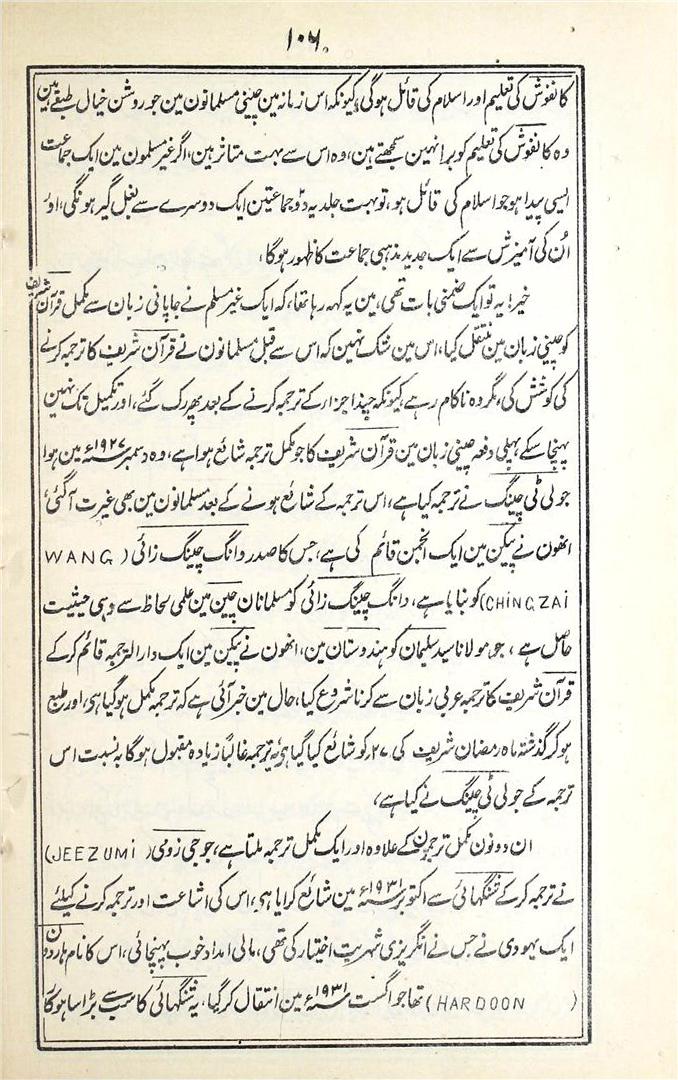 ۱۰۶
کانفوش کی تعلیم اور اسلام کی قائل ہوگی، کیونکہ اس زمانہ مین چینی مسلمانون مین جو روشن خیال طبقے ہین
وہ کانفوش کی تعلیم کو برا نہین سمجھتے ہین، وہ اس سے بہت متاثر ہین، اگر غیر مسلمون مین ایک جماعت
ایسی پیدا ہو جو اسلام کی قائل ہو، تو بہت جلد یہ دو جماعتین ایک دوسرے سے بغل گیر ہونگی، اور
اُن کی آمیزش سے ایک جدید مذہبی جماعت کا ظہور ہوگا،
خیر! یہ تو ایک ضمنی بات تھی، مین یہ کہہ رہا تھا، کہ ایک غیر مسلم نے جاپانی زبان سے مکمل قرآن شریف
کو چینی زبان مین منتقل کیا، اس مین شک نہین کہ اس سے قبل مسلمانون نے قرآن شریف کا ترجمہ کرنے
کی کوشش کی، مگر وہ ناکام رہے، کیونکہ چند اجزار کے ترجمہ کرنے کے بعد پھر رک گئے، اور تکمیل تک نہین
پہنچا سکے پہلی دفعہ چینی زبان مین قرآن شریف کا جو مکمل ترجمہ شائع ہوا ہے، وہ دسمبر ۱۹۲۷ء مین ہوا
جو لی ٹی چینگ نے ترجمہ کیا ہے، اس ترجمہ کے شائع ہونے کے بعد مسلمانون مین بھی غیرت آگئی،
انھون نے پیکن مین ایک انجمن قائم کی ہے، جس کا صدر وانگ چینگ زائی (WANG
CHINGZAI) کو بنایا ہے، وانگ چینگ زائی کو مسلمانان چین مین علمی لحاظ سے وہی حیثیت
حاصل ہے، جو مولانا سید سلیمان کو ہندوستان مین، انھون نے پیکن مین ایک دار الترجمہ قائم کر کے
قرآن شریف کا ترجمہ عربی زبان سے کرنا شروع کیا، حال مین خبر آئی ہے کہ ترجمہ مکمل ہو گیا ہی، اور طبع
ہو کر گذشتہ ماہ رمضان شریف کی ۲۷ کو شائع کیا گیا ہی، یہ ترجمہ غالباً زیادہ مقبول ہوگا بہ نسبت اس
ترجمہ کے جو لی ٹی چینگ نے کیا ہے،
ان دونون مکمل ترجمون کے علاوہ اور ایک مکمل ترجمہ ملتا ہے، جو جی زومی (JEEZUMI)
نے ترجمہ کر کے شنگہائی سے اکتوبر ۱۹۳۱ء مین شائع کرایا ہی، اس کی اشاعت اور ترجمہ کرنے کیلئے
ایک یہودی نے جس نے انگریزی شہریت اختیار کی تھی، مالی امداد خوب پہنچائی، اس کا نام ہاردون
(HARDOON) تھا جو اگست ۱۹۳۱ء مین انتقال کر گیا، یہ شنگہائی کا سب سے بڑا ساہوکار